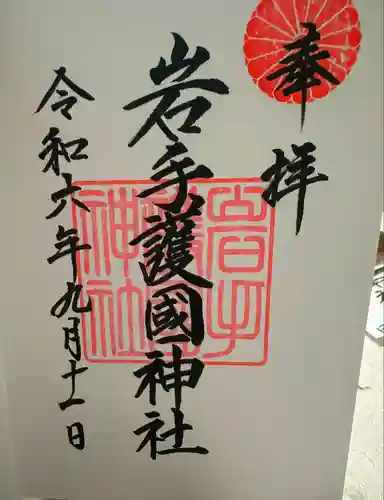 奉拝
岩手護國神社
令和六年九月十一日
岩手護國神社